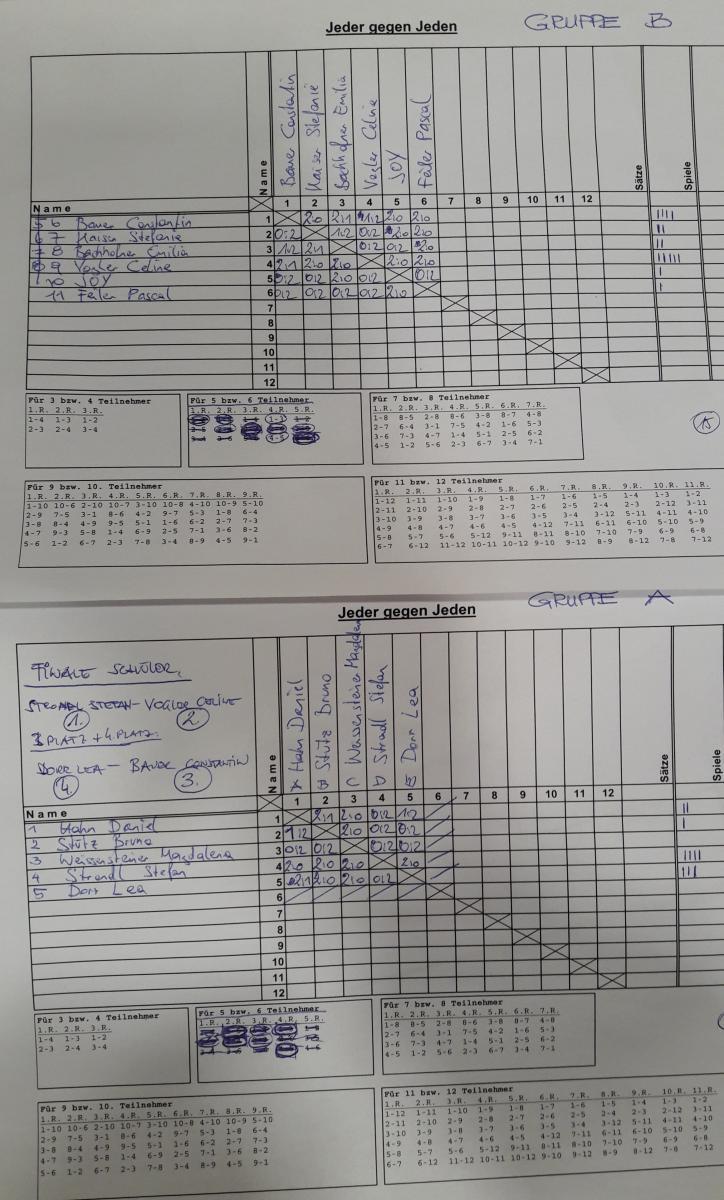 Jeder gegen Jeden GRUPPE B
Bauer Constantin
Kaiser Stefanie
Bachhofner Emilia
Vogler Celine
JOY
Feiler Pascal
Name Name 1 2 3 4 5 6 7 8 9 10 11 12 Sätze Spiele
6 Bauer Constantin 1 2:0 2:1 1:2 2:0 2:0 IIII
7 Kaiser Stefanie 2 0:2 1:2 0:2 2:0 2:0 II
8 Bachhofner Emilia 3 1:2 2:1 0:2 0:2 2:0 II
9 Vogler Celine 4 2:1 2:0 2:0 2:0 2:0 IIIII
10 JOY 5 0:2 0:2 2:0 0:2 0:2 I
11 Feiler Pascal 6 0:2 0:2 0:2 0:2 2:0 I
7
8
9
10
11
12
Für 3 bzw. 4 Teilnehmer
1.R. 2.R. 3.R.
1-4 1-3 1-2
2-3 2-4 3-4
Für 5 bzw. 6 Teilnehmer
1.R. 2.R. 3.R. 4.R. 5.R.
Für 7 bzw. 8 Teilnehmer
1.R. 2.R. 3.R. 4.R. 5.R. 6.R. 7.R.
1-8 8-5 2-8 8-6 3-8 8-7 4-8
2-7 6-4 3-1 7-5 4-2 1-6 5-3
3-6 7-3 4-7 1-4 5-1 2-5 6-2
4-5 1-2 5-6 2-3 6-7 3-4 7-1
15
Für 9 bzw. 10. Teilnehmer
1.R. 2.R. 3.R. 4.R. 5.R. 6.R. 7.R. 8.R. 9.R.
1-10 10-6 2-10 10-7 3-10 10-8 4-10 10-9 5-10
2-9 7-5 3-1 8-6 4-2 9-7 5-3 1-8 6-4
3-8 8-4 4-9 9-5 5-1 1-6 6-2 2-7 7-3
4-7 9-3 5-8 1-4 6-9 2-5 7-1 3-6 8-2
5-6 1-2 6-7 2-3 7-8 3-4 8-9 4-5 9-1
Für 11 bzw. 12 Teilnehmer
1.R. 2.R. 3.R. 4.R. 5.R. 6.R. 7.R. 8.R. 9.R. 10.R. 11.R.
1-12 1-11 1-10 1-9 1-8 1-7 1-6 1-5 1-4 1-3 1-2
2-11 2-10 2-9 2-8 2-7 2-6 2-5 2-4 2-3 2-12 3-11
3-10 3-9 3-8 3-7 3-6 3-5 3-4 3-12 5-11 4-11 4-10
4-9 4-8 4-7 4-6 4-5 4-12 7-11 6-11 6-10 5-10 5-9
5-8 5-7 5-6 5-12 9-11 8-11 8-10 7-10 7-9 6-9 6-8
6-7 6-12 11-12 10-11 10-12 9-10 9-12 8-9 8-12 7-8 7-12
Jeder gegen Jeden GRUPPE A
FINALE SCHÜLER.
STRONDL STEFAN - VOGLER CELINE
1. 2
3 PLATZ + 4. PLATZ.
DORR LEA - BAUER CONSTANTIN
4. 3.
A Hahn Daniel
B Stütz Bruno
C Weissensteiner Magdalena
D Strondl Stefan
E Dorr Lea
Name Name 1 2 3 4 5 6 7 8 9 10 11 12 Sätze Spiele
1 Hahn Daniel 1 2:1 2:0 0:2 1:2 II
2 Stütz Bruno 2 1:2 2:0 0:2 0:2 I
3 Weissensteiner Magdalena 3 0:2 0:2 0:2 0:2
4 Strondl Stefan 4 2:0 2:0 2:0 2:0 IIII
5 Dorr Lea 5 2:1 2:0 2:0 0:2 III
6
7
8
9
10
11
12
Für 3 bzw. 4 Teilnehmer
1.R. 2.R. 3.R.
1-4 1-3 1-2
2-3 2-4 3-4
Für 5 bzw. 6 Teilnehmer
1.R. 2.R. 3.R. 4.R. 5.R.
Für 7 bzw. 8 Teilnehmer
1.R. 2.R. 3.R. 4.R. 5.R. 6.R. 7.R.
1-8 8-5 2-8 8-6 3-8 8-7 4-8
2-7 6-4 3-1 7-5 4-2 1-6 5-3
3-6 7-3 4-7 1-4 5-1 2-5 6-2
4-5 1-2 5-6 2-3 6-7 3-4 7-1
Für 9 bzw. 10. Teilnehmer
1.R. 2.R. 3.R. 4.R. 5.R. 6.R. 7.R. 8.R. 9.R.
1-10 10-6 2-10 10-7 3-10 10-8 4-10 10-9 5-10
2-9 7-5 3-1 8-6 4-2 9-7 5-3 1-8 6-4
3-8 8-4 4-9 9-5 5-1 1-6 6-2 2-7 7-3
4-7 9-3 5-8 1-4 6-9 2-5 7-1 3-6 8-2
5-6 1-2 6-7 2-3 7-8 3-4 8-9 4-5 9-1
Für 11 bzw. 12 Teilnehmer
1.R. 2.R. 3.R. 4.R. 5.R. 6.R. 7.R. 8.R. 9.R. 10.R. 11.R.
1-12 1-11 1-10 1-9 1-8 1-7 1-6 1-5 1-4 1-3 1-2
2-11 2-10 2-9 2-8 2-7 2-6 2-5 2-4 2-3 2-12 3-11
3-10 3-9 3-8 3-7 3-6 3-5 3-4 3-12 5-11 4-11 4-10
4-9 4-8 4-7 4-6 4-5 4-12 7-11 6-11 6-10 5-10 5-9
5-8 5-7 5-6 5-12 9-11 8-11 8-10 7-10 7-9 6-9 6-8
6-7 6-12 11-12 10-11 10-12 9-10 9-12 8-9 8-12 7-8 7-12